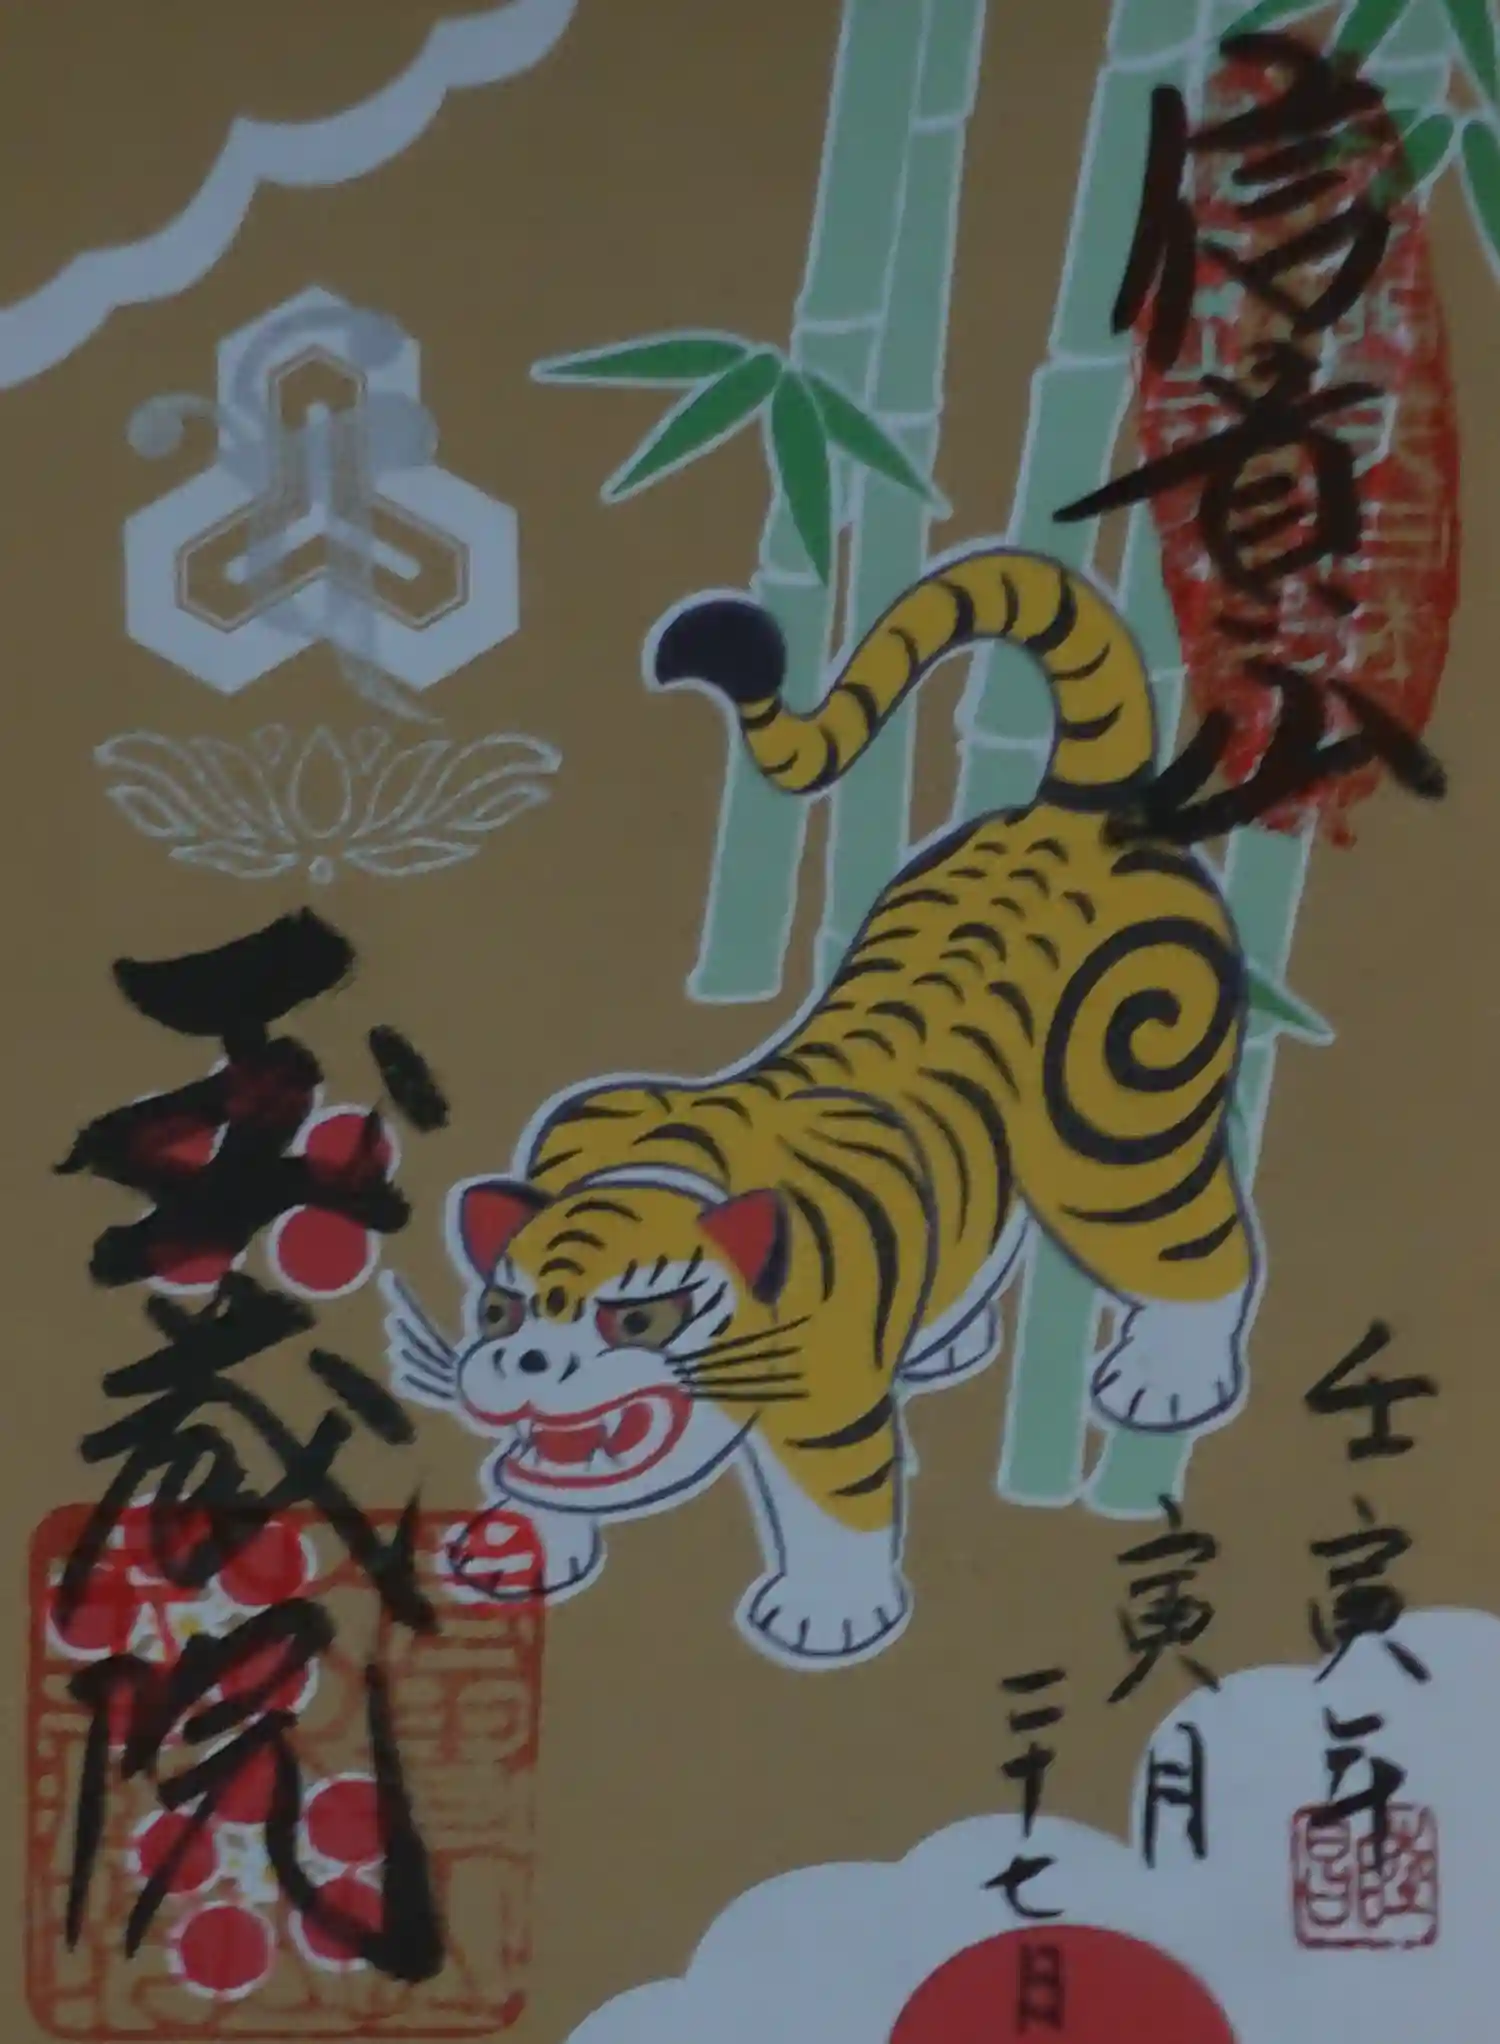 信貴山
壬寅年
寅月
二十七日
玉蔵院